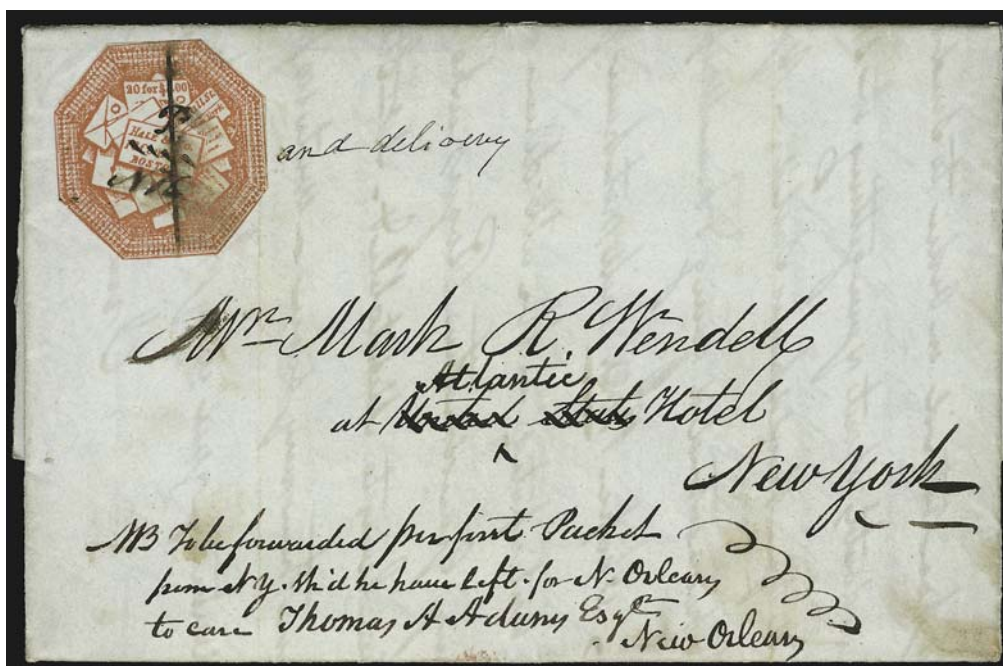 20 for $1.00
HALE &
BOSTON
and delivery
Mr. Mark R. Wendell
Atlantic
at United States Hotel
New York
NB To be forwarded per first Packet
from N Y. Sh'd he have left for N. Orleans
to care Thomas A Adams Esqr
New Orleans